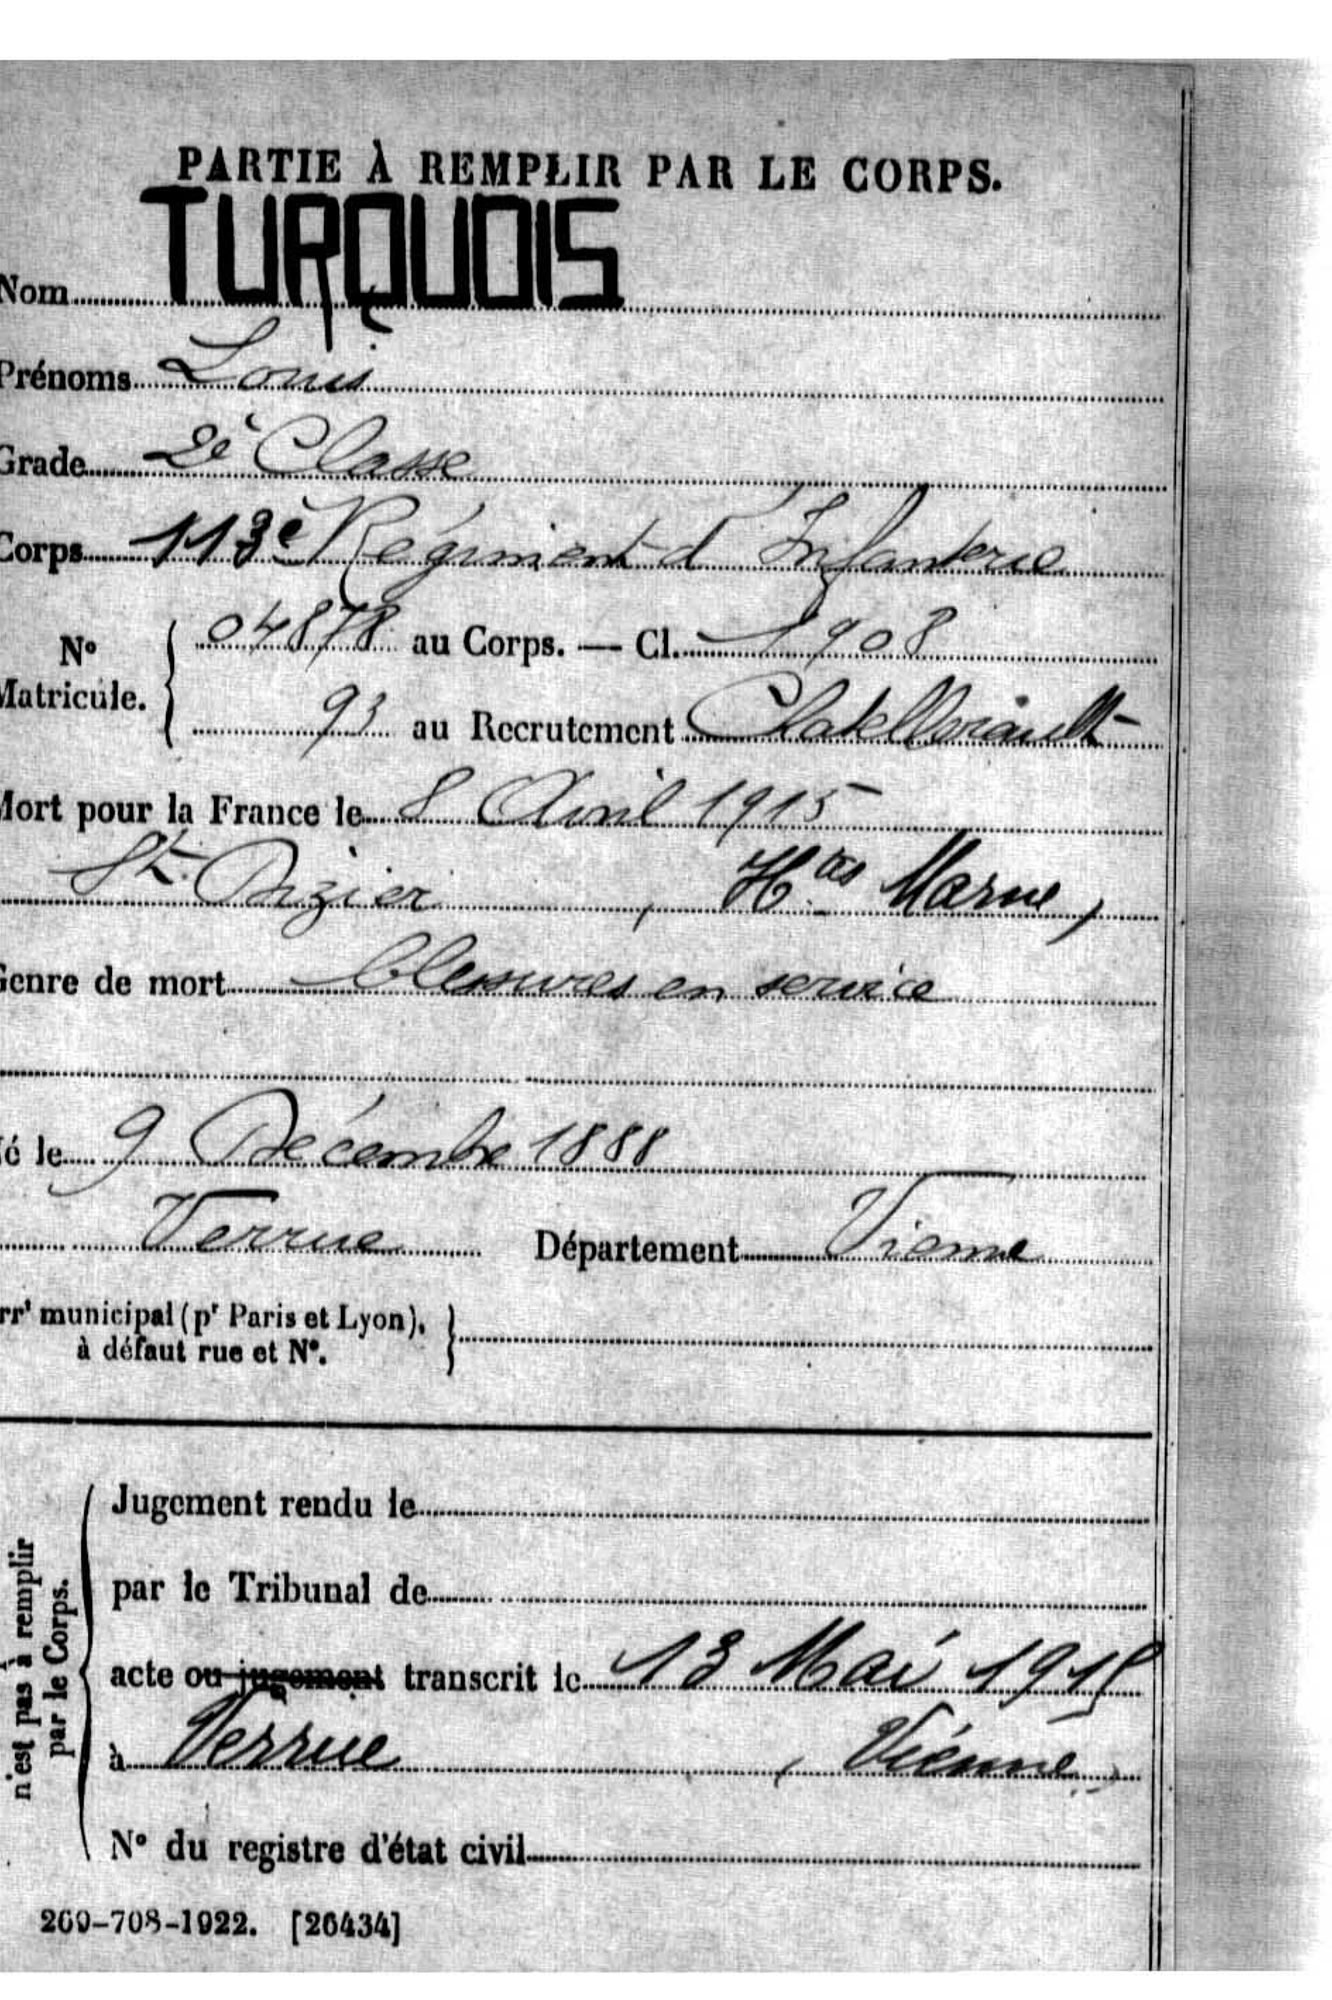 PARTIE À REMPLIR PAR LE CORPS.
Nom TURQUOIS
Prénoms Louis
Grade 2è Classe
Corps 113è Régiment d'Infanterie
04878 au Corps. — Cl. 1908
N° Matricule.
93 au Recrutement Chatellerault
Mort pour la France le 8 Avril 1915
St. Dizier, Htes Marne,
Genre de mort blessures en service
Né le 9 Décembre 1888
Verrue Département Vienne
rrt municipal (pr Paris et Lyon),
à défaut rue et N°.
Jugement rendu le
par le Tribunal de
acte ou jugement transcrit le 13 Mai 1915
à Verrue (Vienne)
N° du registre d'état civil
n'est pas à remplir
par le Corps.
269-708-1922. [26434]